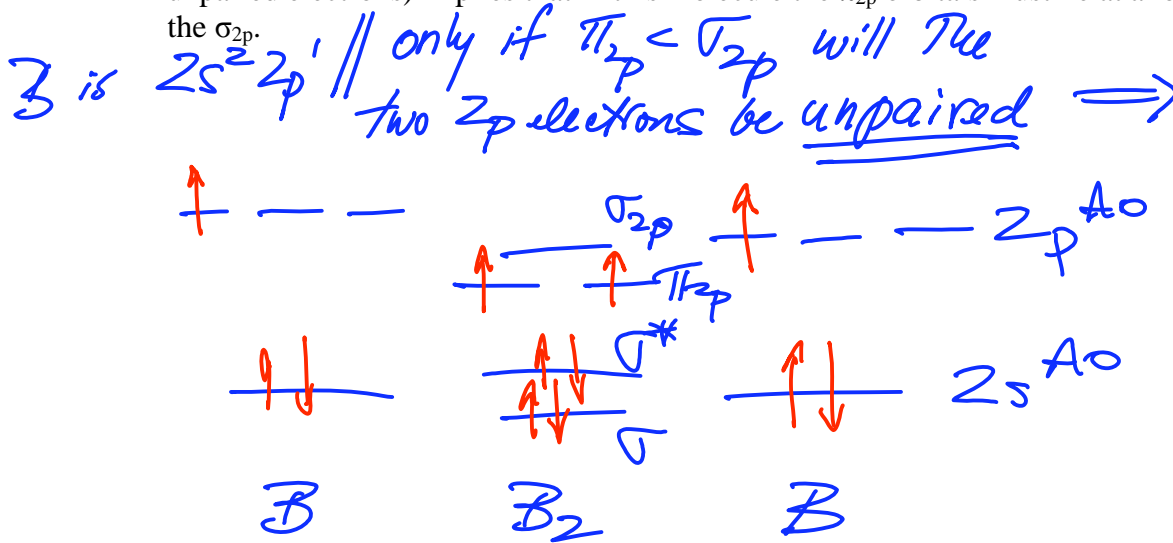 the σ2p.
B is 2s² 2p¹ // only if π2p < σ2p will the
two 2p electrons be unpaired ⟹
σ2p
2p AO
π2p
σ*
2s AO
σ
B B2 B